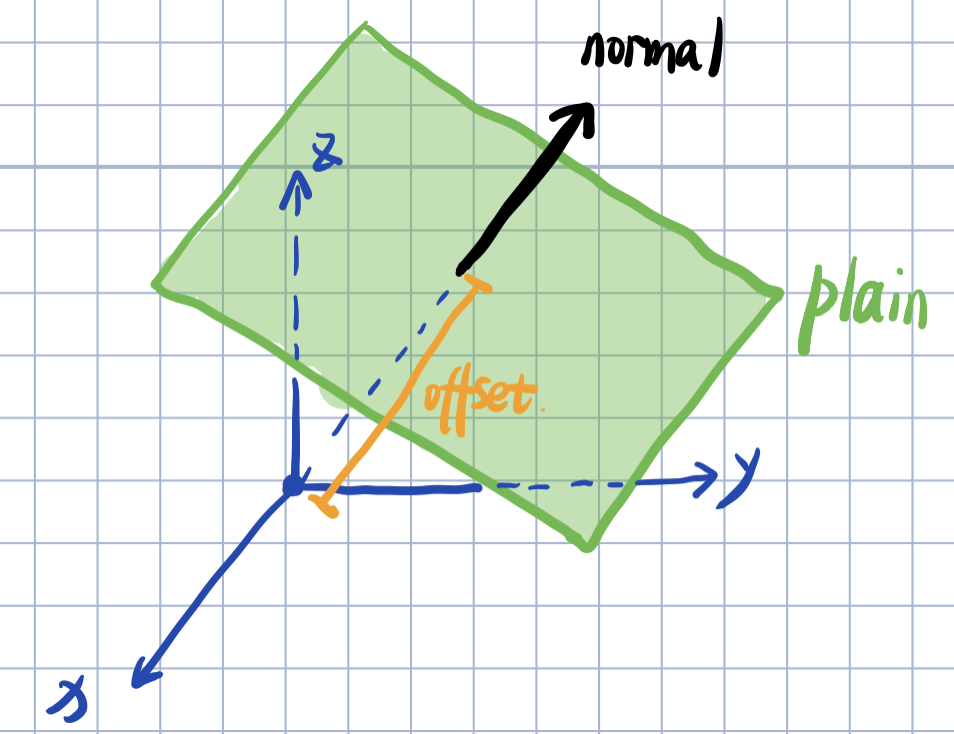 normal
z
plain
offset.
y
x